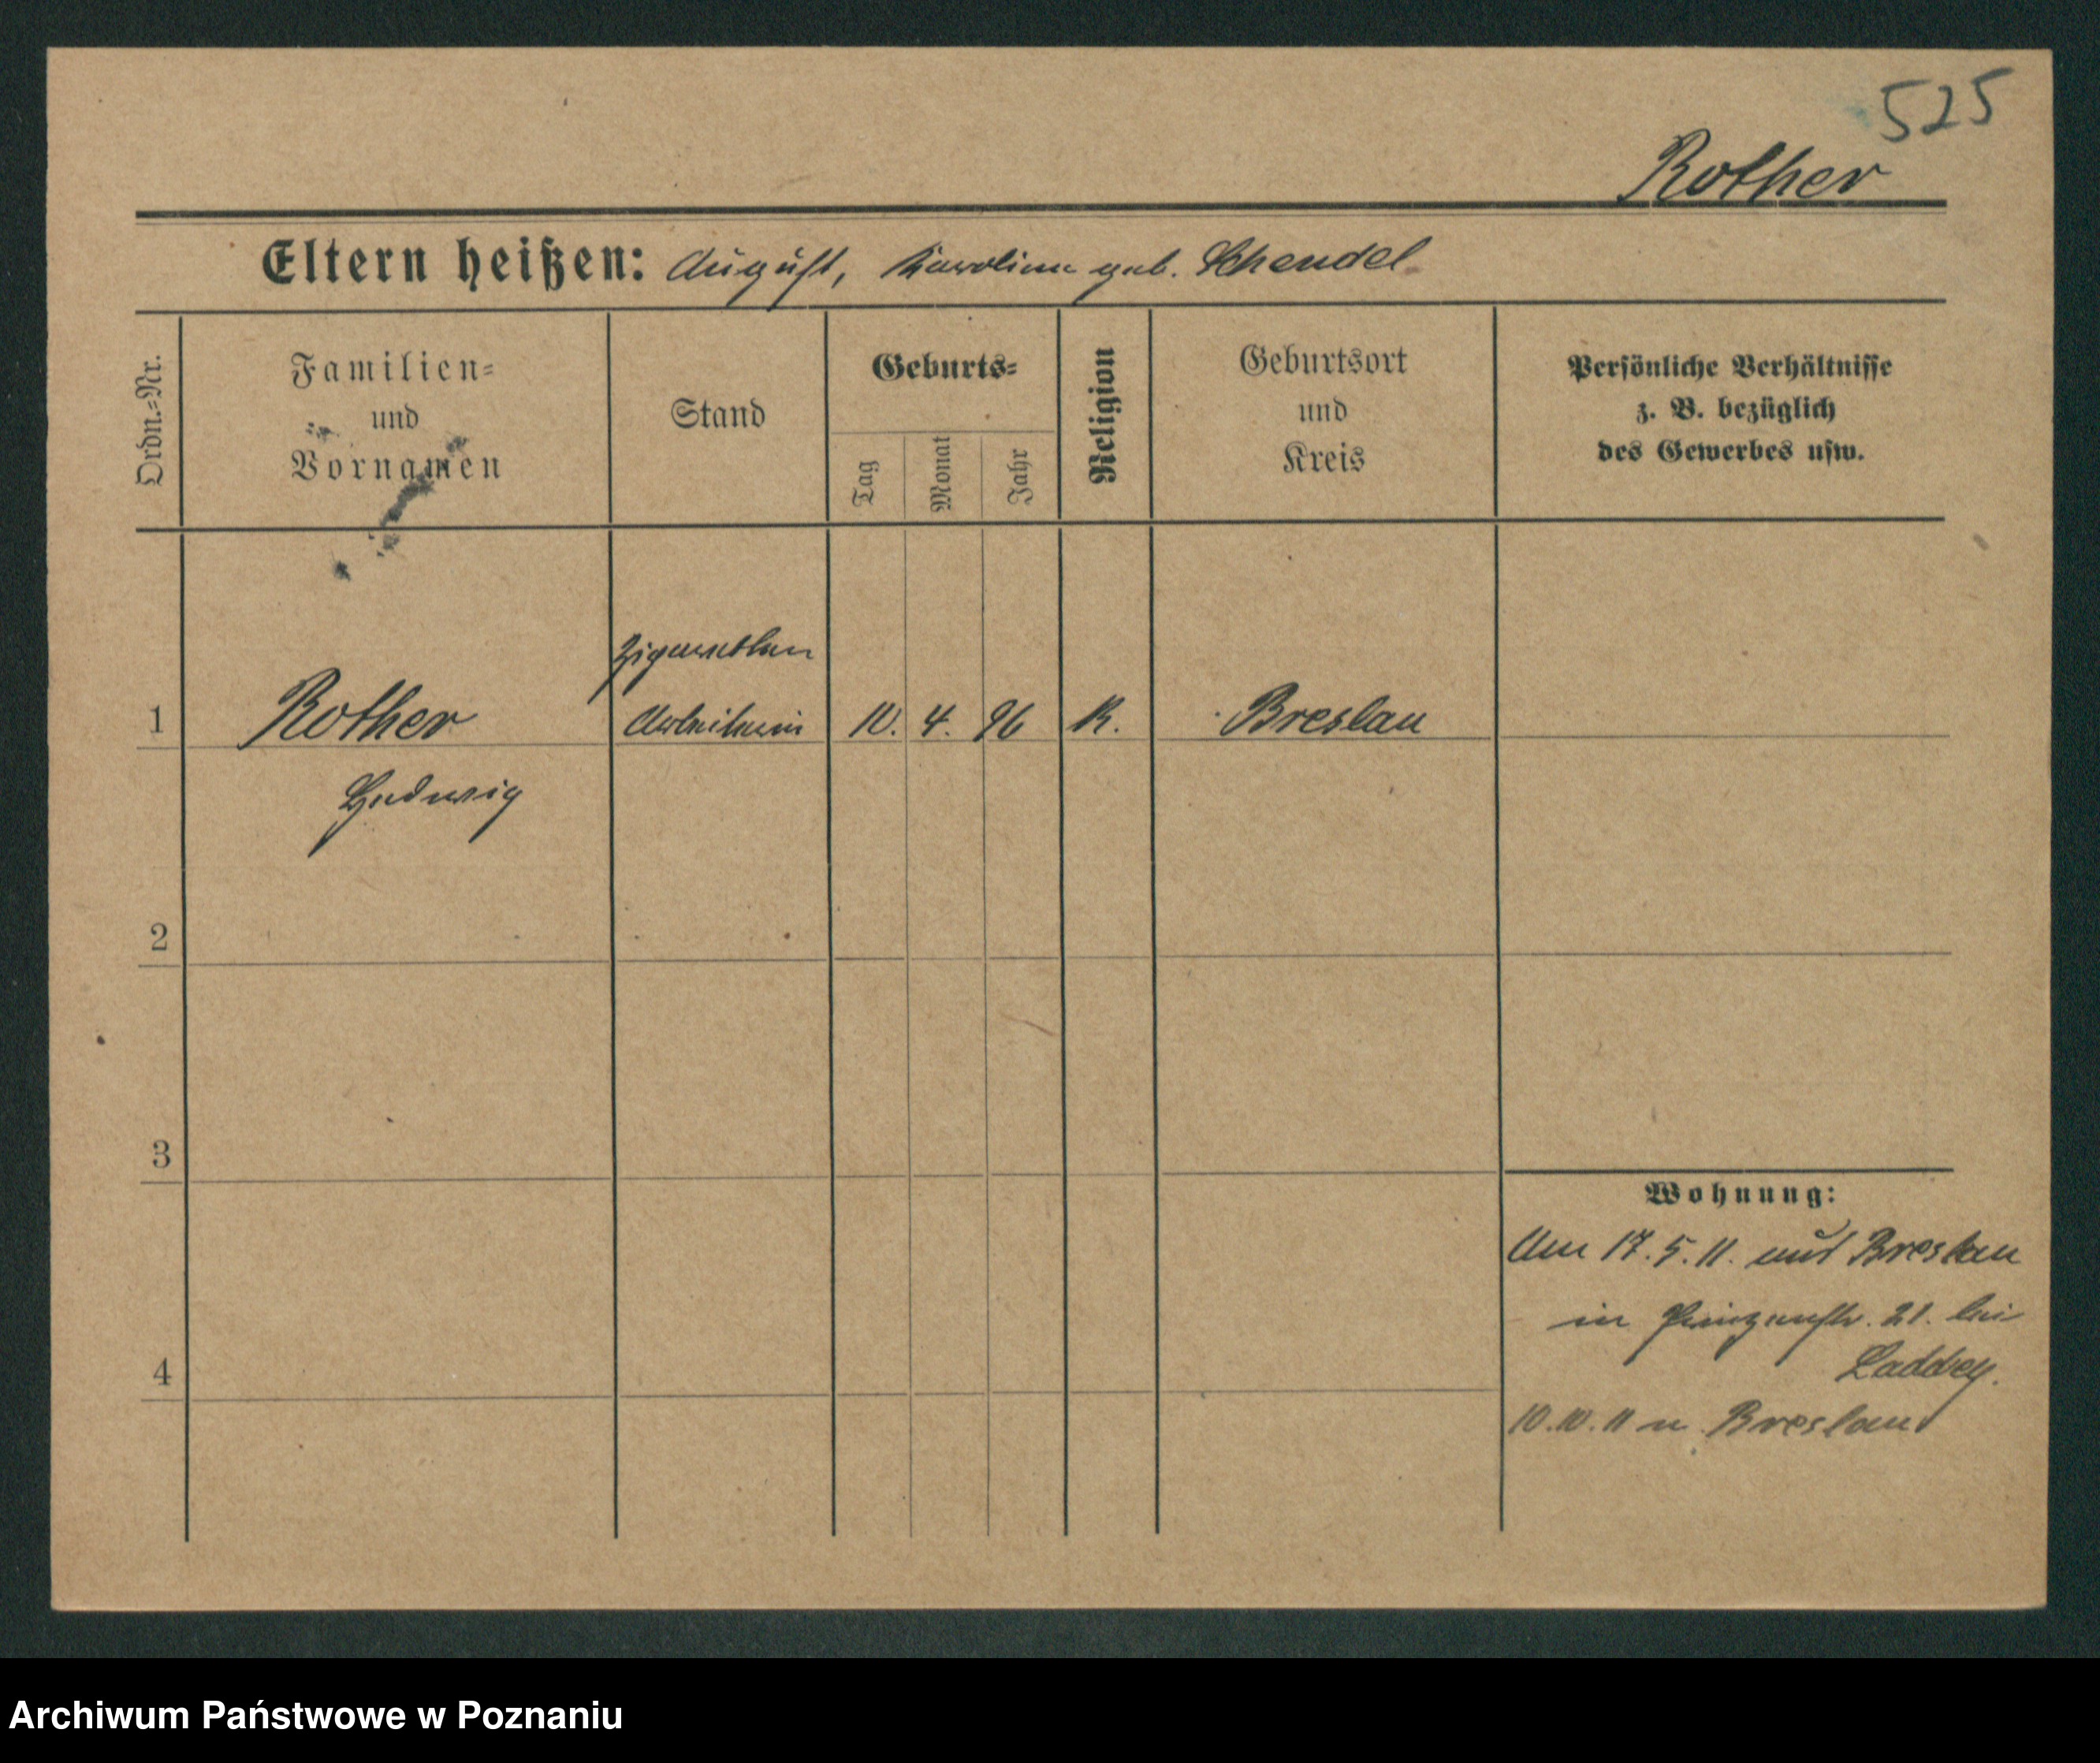 525
Rother
Eltern heißen: August, Karoline geb. Schendel
Ordn.=Nr.
Familien=
und
Vornamen
Stand
Geburts=
Tag
Monat
Jahr
Religion
Geburtsort
und
Kreis
Persönliche Verhältnisse
z. B. bezüglich
des Gewerbes usw.
Zigaretten
1 Rother Arbeiterin 10. 4. 96 K. Breslau
Hedwig
2
3
4
Wohnung:
Am 17. 5. 11. aus Breslau
in Prinzenstr. 21. bei
Laddey.
10. 10. 11 n. Breslau
Archiwum Państwowe w Poznaniu